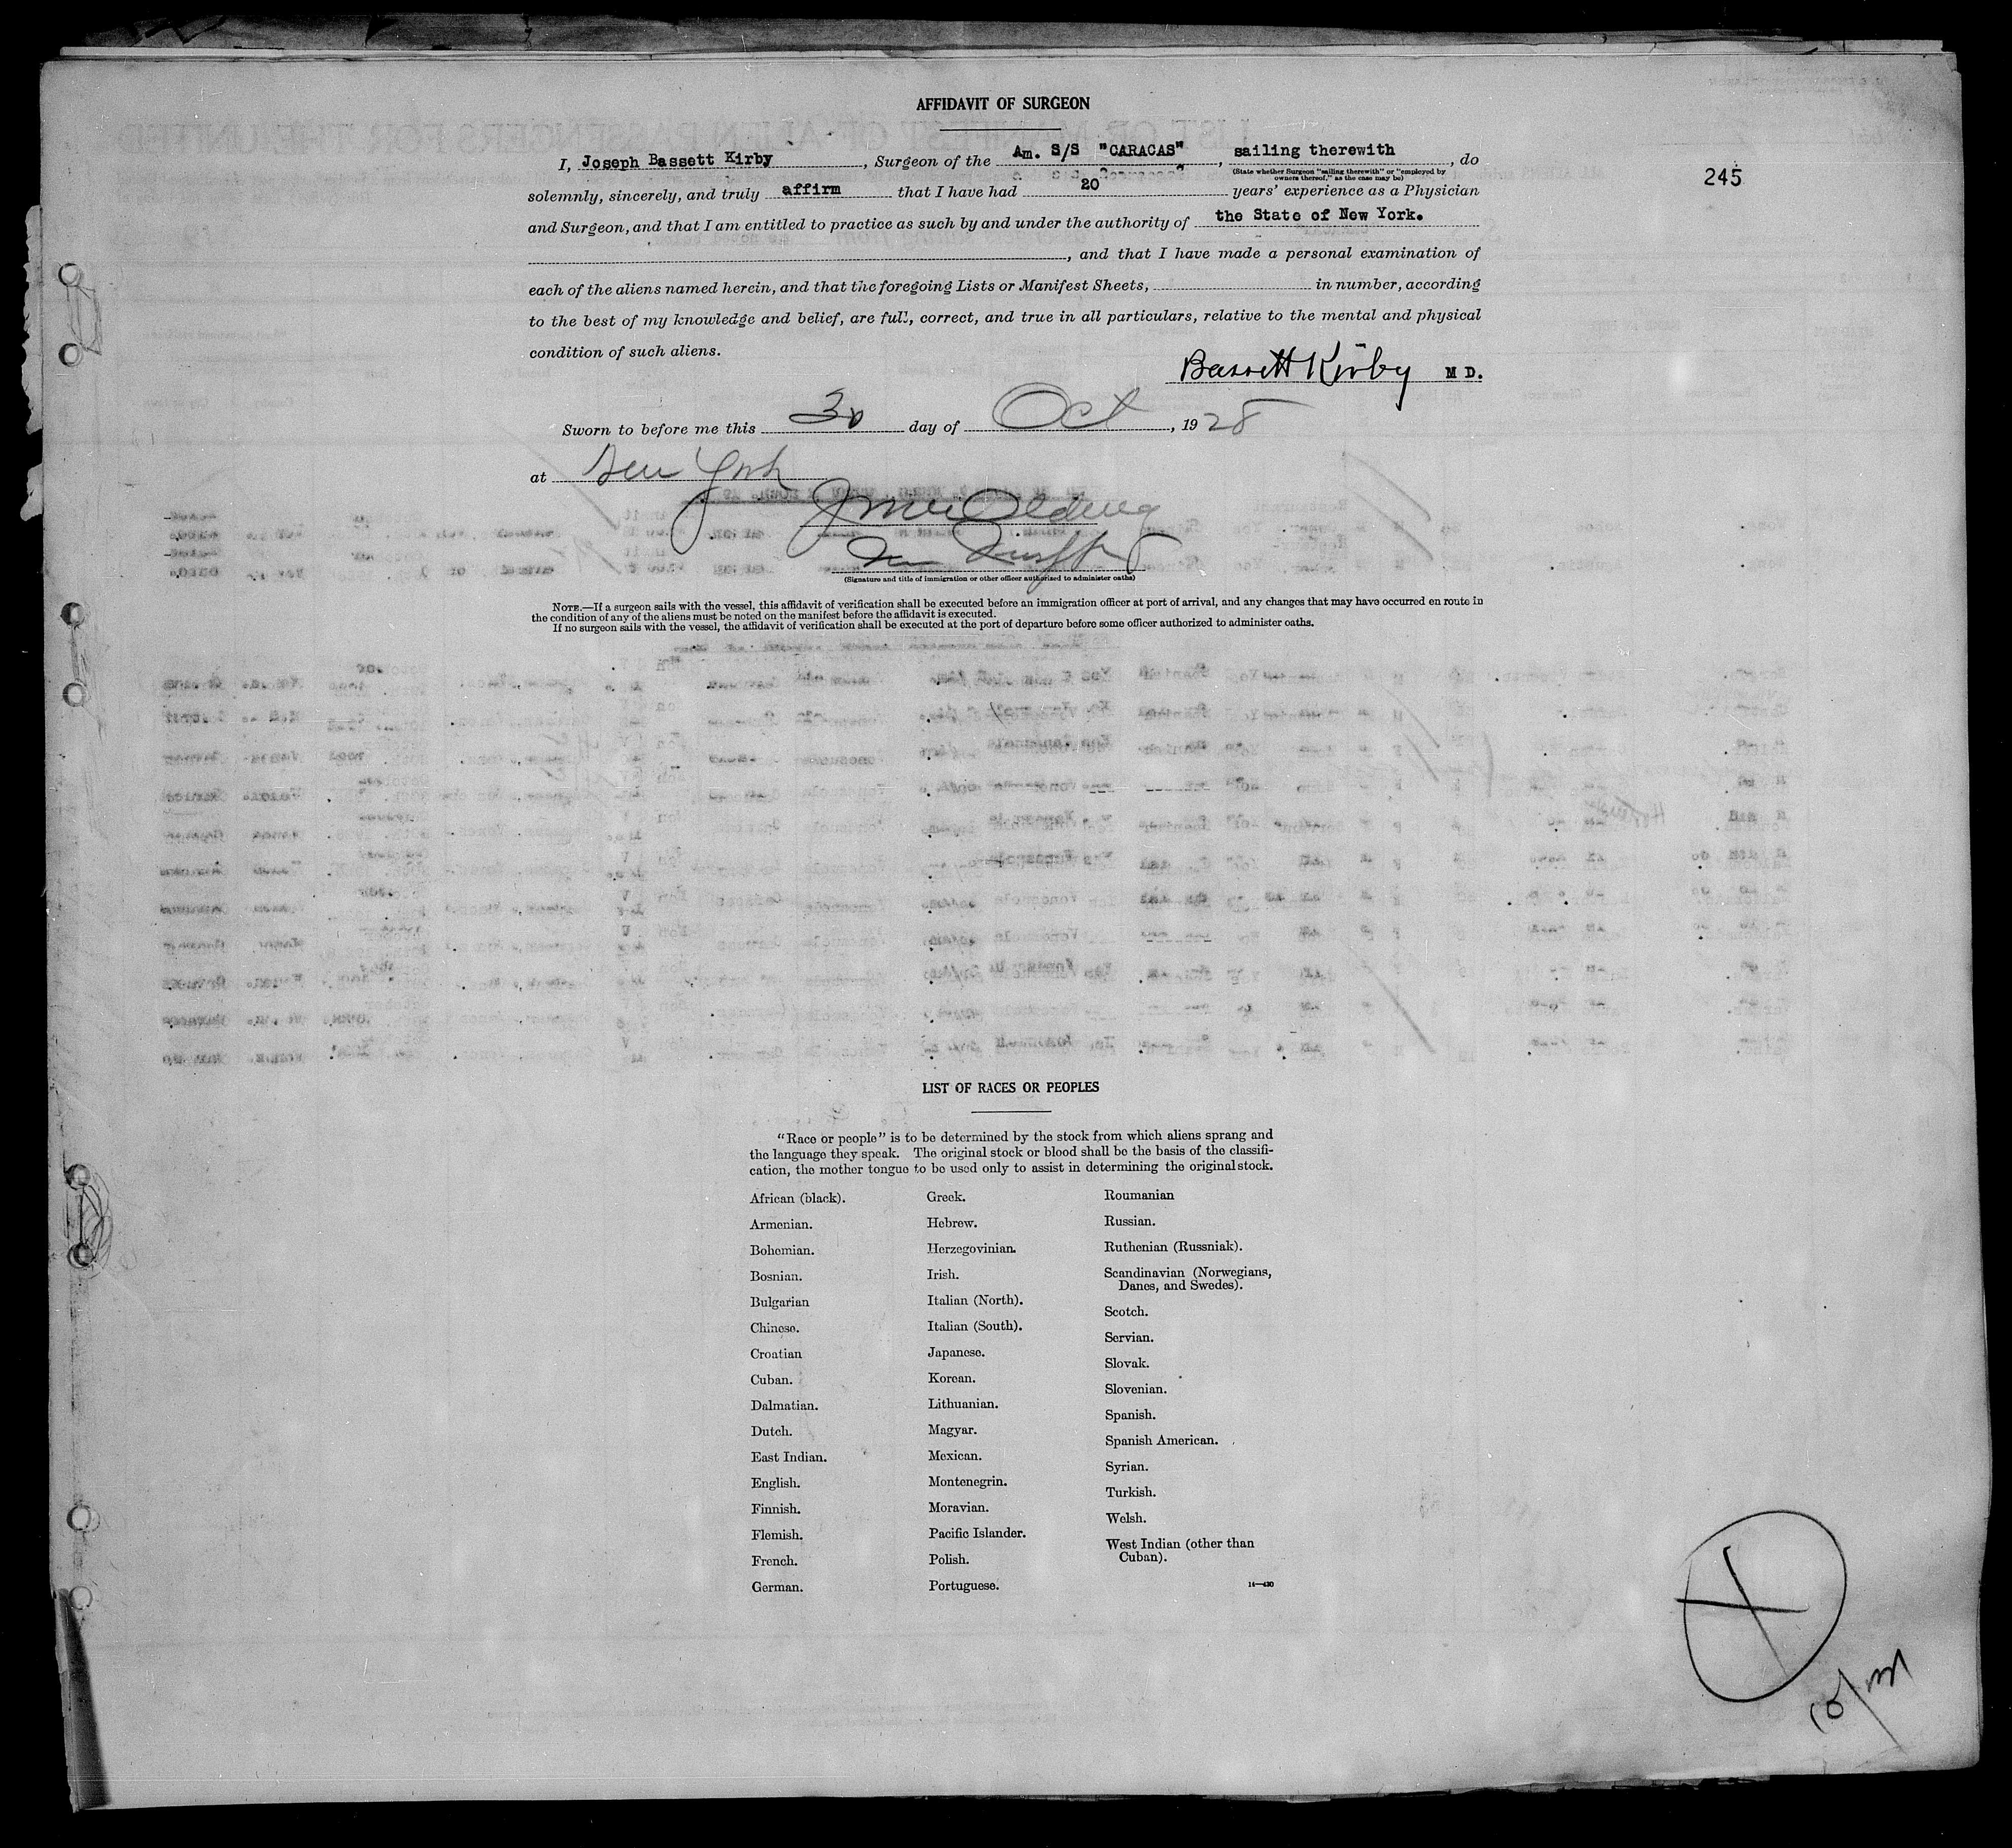 AFFIDAVIT OF SURGEON
245
I, Joseph Bassett Kirby, Surgeon of the Am. S/S "CARACAS", sailing therewith, do
(State whether Surgeon "sailing therewith" or "employed by owners thereof," as the case may be)
solemnly, sincerely, and truly affirm that I have had 20 years' experience as a Physician
and Surgeon, and that I am entitled to practice as such by and under the authority of the State of New York.
, and that I have made a personal examination of
each of the aliens named herein, and that the foregoing Lists or Manifest Sheets, in number, according
to the best of my knowledge and belief, are full, correct, and true in all particulars, relative to the mental and physical
condition of such aliens.
Bassett Kirby M D.
Sworn to before me this 30 day of Oct, 1928
at New York
(Signature and title of immigration or other officer authorized to administer oaths)
NOTE.—If a surgeon sails with the vessel, this affidavit of verification shall be executed before an immigration officer at port of arrival, and any changes that may have occurred en route in
the condition of any of the aliens must be noted on the manifest before the affidavit is executed.
If no surgeon sails with the vessel, the affidavit of verification shall be executed at the port of departure before some officer authorized to administer oaths.
LIST OF RACES OR PEOPLES
"Race or people" is to be determined by the stock from which aliens sprang and
the language they speak. The original stock or blood shall be the basis of the classifi-
cation, the mother tongue to be used only to assist in determining the original stock.
African (black).
Armenian.
Bohemian.
Bosnian.
Bulgarian
Chinese.
Croatian
Cuban.
Dalmatian.
Dutch.
East Indian.
English.
Finnish.
Flemish.
French.
German.
Greek.
Hebrew.
Herzegovinian.
Irish.
Italian (North).
Italian (South).
Japanese.
Korean.
Lithuanian.
Magyar.
Mexican.
Montenegrin.
Moravian.
Pacific Islander.
Polish.
Portuguese.
Roumanian
Russian.
Ruthenian (Russniak).
Scandinavian (Norwegians,
Danes, and Swedes).
Scotch.
Servian.
Slovak.
Slovenian.
Spanish.
Spanish American.
Syrian.
Turkish.
Welsh.
West Indian (other than
Cuban).
14—430